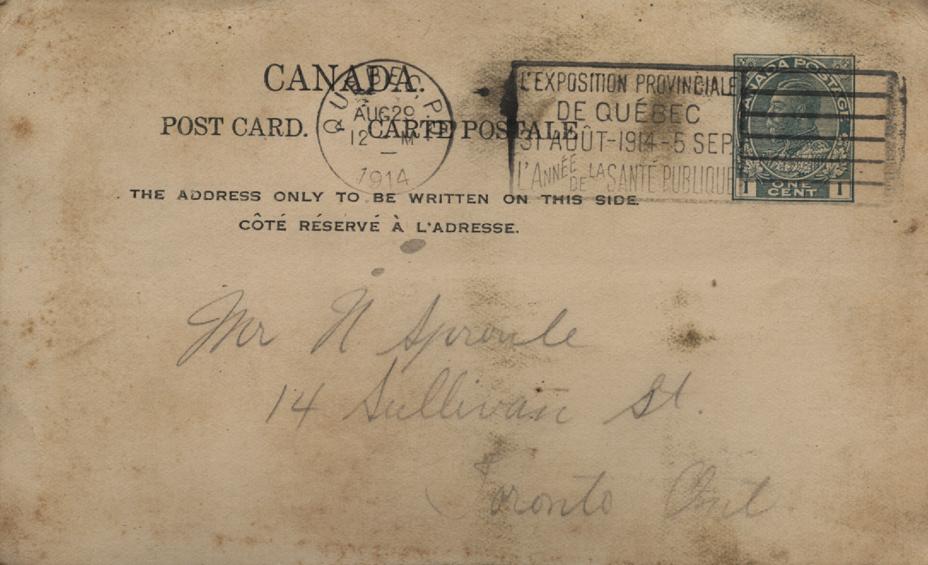 CANADA.
POST CARD. CARTE POSTALE
THE ADDRESS ONLY TO BE WRITTEN ON THIS SIDE
CÔTÉ RÉSERVÉ À L'ADRESSE.
QUEBEC, P.Q.
AUG 29
12 M
1914
L'EXPOSITION PROVINCIALE
DE QUÉBEC
31 AOÛT-1914-5 SEP.
L'ANNÉE DE LA SANTÉ PUBLIQUE
CANADA POSTAGE
1 ONE CENT 1
Mr N Sproule
14 Sullivan St.
Toronto Ont.